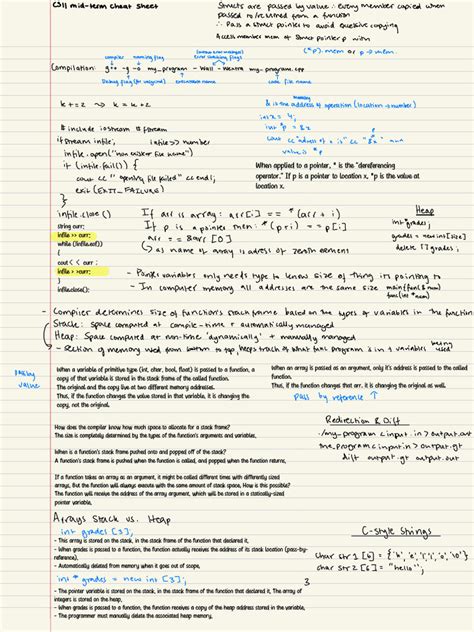 CS11 mid-term cheat sheet
Structs are passed by value ∴ every member copied when
passed to/returned from a function
∴ Pass a struct pointer to avoid excessive copying
Access member mem of struct pointer p with
(*p).mem or p->mem
compiler naming flag
error detecting flags
Compilation: g++ -g -o my_program -Wall -Wextra my_program.cpp
Debug flag (for valgrind) executable name code file name
k += 2 k = k + 2
& is the address of operation (location → number)
int x = 4;
int *p = &x
# include iostream # fstream
ifstream infile; infile >> number
infile.open("
if (infile.fail()) {
cout << " opening file failed" << endl;
exit (EXIT_FAILURE)
}
When applied to a pointer, * is the "dereferencing
operator." If p is a pointer to location x, *p is the value at
location x.
infile.close()
If arr is array: arr[i] == *(arr + i)
If p is a pointer then: *(p+i) == p[i]
arr == &arr[0]
as name of array is address of zeroth element
Heap
int *grades;
grades = new int[size]
delete [] grades;
string curr;
infile >> curr;
while (!infile.eof())
{
cout << curr ;
infile > >curr;
}
infile.close():
- Pointer variables only need type to know size of thing its pointing to
- In computer memory all addresses are the same size
- Compiler determines size of function's stack frame based on the types of variables in the function
Stack: Space computed at compile-time + automatically managed
Heap: Space computed at run-time 'dynamically' + manually managed
- Section of memory used from bottom to top, keeps track of what func program is in + variables being used
pass by value
When a variable of primitive type (int, char, bool, float) is passed to a function, a
copy of that variable is stored in the stack frame of the called function.
The original and the copy live at two different memory addresses.
Thus, if the function changes the value stored in that variable, it is changing the
copy, not the original.
When an array is passed as an argument, only it's address is passed to the called
function.
Thus, if the function changes that arr. it is changing the original as well.
pass by reference ↑
How does the compiler know how much space to allocate for a stack frame?
The size is completely determined by the types of the function's arguments and variables,
When is a function's stack frame pushed onto and popped off of the stack?
A function's stack frame is pushed when the function is called, and popped when the function returns,
If a function takes an array as an argument, it might be called different times with differently sized
arrays, But the function will always execute with the same amount of stack space, How is this possible?
The function will receive the address of the array argument, which will be stored in a statically-sized
pointer variable,
Redirection & Diff
./my_program < input.in > output.out
the_program < input.in > output.gt
diff output.gt output.out
Arrays Stack vs. Heap
int grades [3];
- This array is stored on the stack, in the stack frame of the function that declared it,
- When grades is passed to the function, the function actually receives the address of its stack location (pass-by-
reference),
- Automatically deleted from memory when it goes out of scope,
int * grades = new int [3];
- The pointer variable is stored on the stack, in the stack frame of the function that declared it, The array of
integers is stored on the heap,
- When grades is passed to a function, the function receives a copy of the heap address stored in the variable,
- The programmer must manually delete the associated heap memory,
C-style Strings
char str1 [6] = {'h', 'e', 'l', 'l', 'o', '\0'}
char str2 [6] = "hello";
3